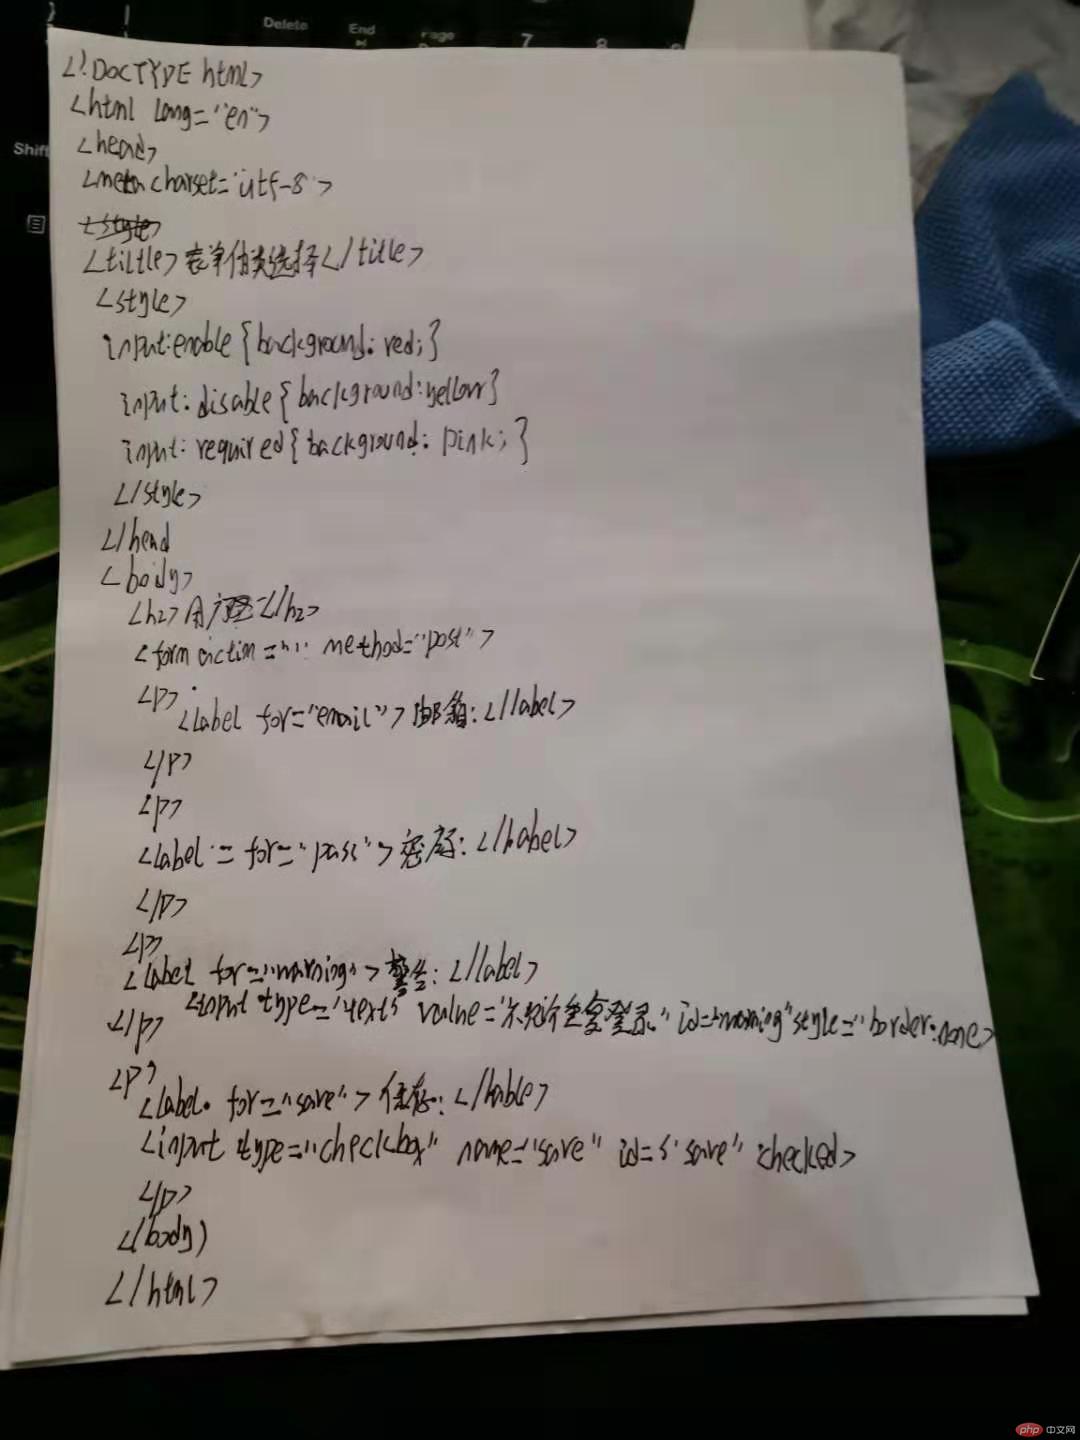 Delete
End
Page
7
8
Shift
<!DOCTYPE html>
<html lang="en">
<head>
<meta charset="utf-8">
<style>
<tiltle>表单伪类选择</title>
<style>
input:enable{background:red;}
input:disable{background:yellow}
input:required{background:pink;}
</style>
</head
<body>
<h2>用户</h2>
<form action="" method="post">
<p>
<label for="email">邮箱:</label>
</p>
<p>
<label = for="pass">密码:</label>
</p>
<p>
<label for="warning">警告:</label>
<input type="text" value="不允许重复登录" id="warning" style="border:none>
</p>
<p>
<label for="save">保存:</lable>
<input type="checkbox" name="save" id="save" checked>
</p>
</body)
</html>
php 中文网